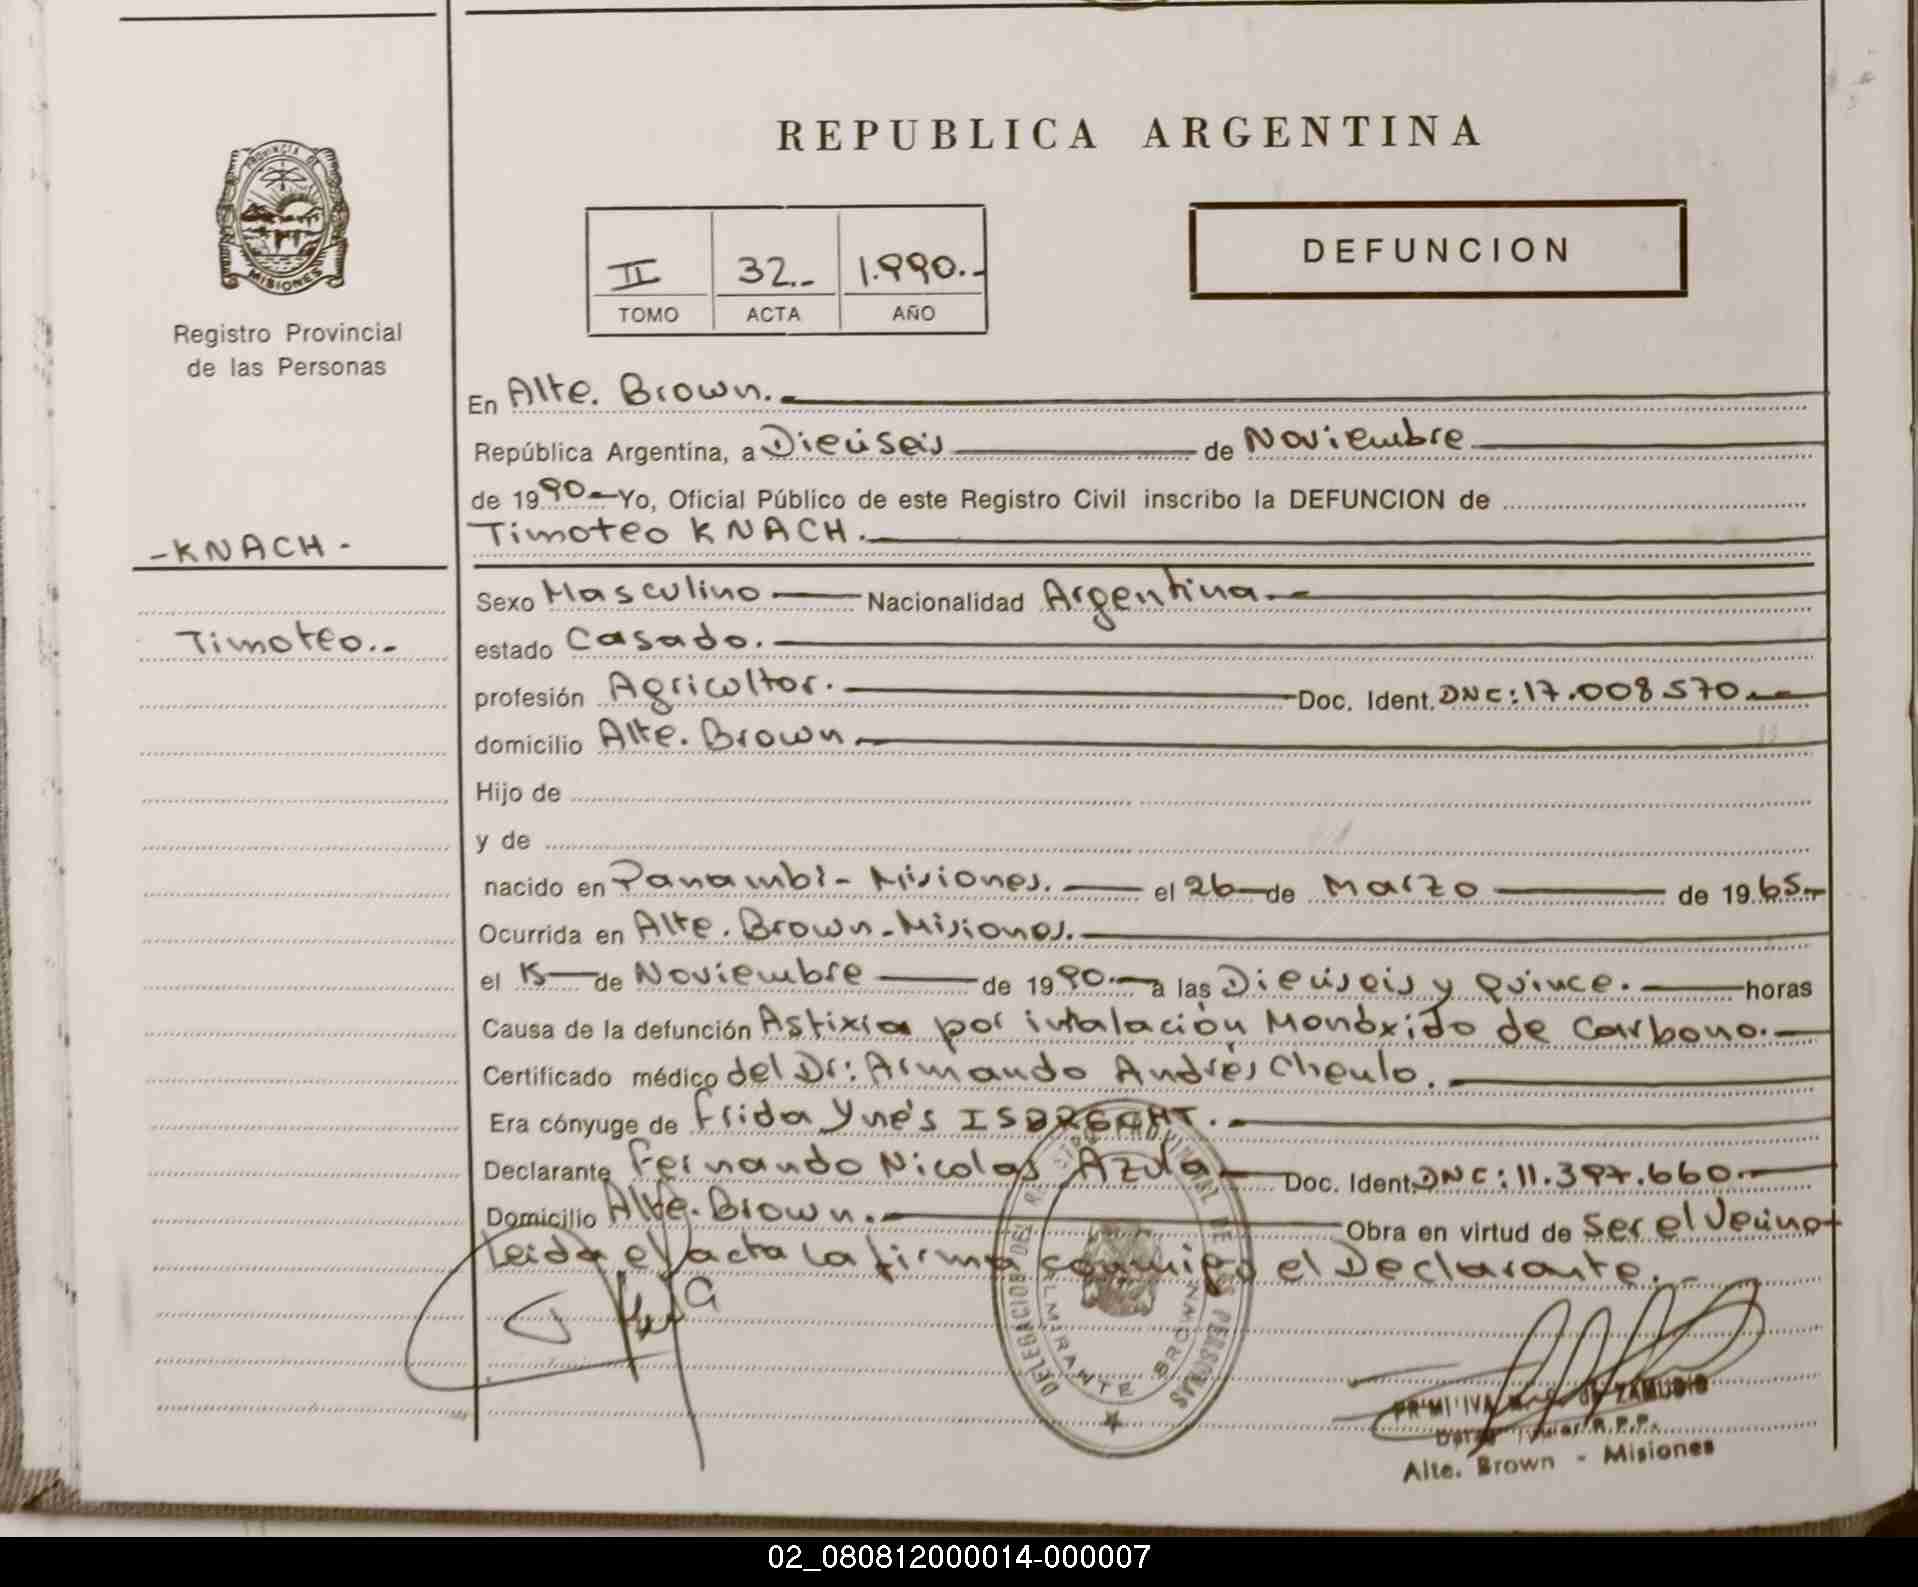 PROVINCIA DE
MISIONES
Registro Provincial
de las Personas
-KNACH-
Timoteo.-
REPUBLICA ARGENTINA
II 32.- 1.990.-
TOMO ACTA AÑO
DEFUNCION
En Alte. Brown.
República Argentina, a Dieciseis de Noviembre
de 1990 Yo, Oficial Público de este Registro Civil inscribo la DEFUNCION de
Timoteo KNACH.
Sexo Masculino Nacionalidad Argentina.
estado Casado.
profesión Agricultor. Doc. Ident. DNC: 17.008570
domicilio Alte. Brown
Hijo de
y de
nacido en Panambi - Misiones. el 26 de Marzo de 1965
Ocurrida en Alte. Brown - Misiones.
el 15 de Noviembre de 1990 a las Dieciseis y Quince. horas
Causa de la defunción Asfixia por intalación Monóxido de Carbono.
Certificado médico del Dr: Armando Andrés Cheulo.
Era cónyuge de Frida Ynés ISBRECHT.
Declarante Fernando Nicolas Azula Doc. Ident. DNC: 11.397.660
Domicilio Alte. Brown. Obra en virtud de ser el Vecino
Leida el acta la firma conmigo el Declarante.
DELEGACION DEL REGISTRO PROVINCIAL DE LAS PERSONAS
ALMIRANTE BROWN
de ZAMUDIO
R.P.P.
Alte. Brown - Misiones
02_080812000014-000007